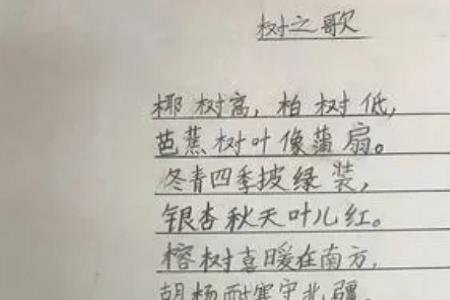 树之歌
椰树高，柏树低，
芭蕉树叶像蒲扇。
冬青四季披绿装，
银杏秋天叶儿红。
榕树喜暖在南方，
胡杨耐寒守北疆